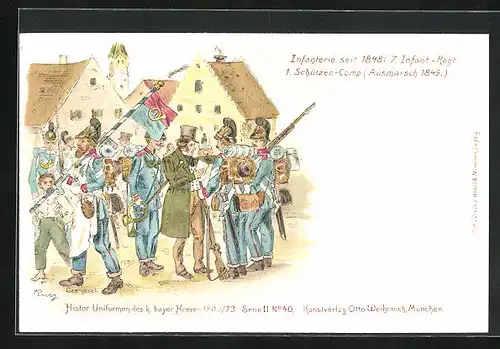 Infanterie seit 1848: 7. Infant-Regt
1. Schützen-Comp (Ausmarsch 1849.)
Ges. gesch.
Histor Uniformen des k. bayer Heeres 1800/73 Serie II No 40. Kunstverlag Otto Weihrauch, München.